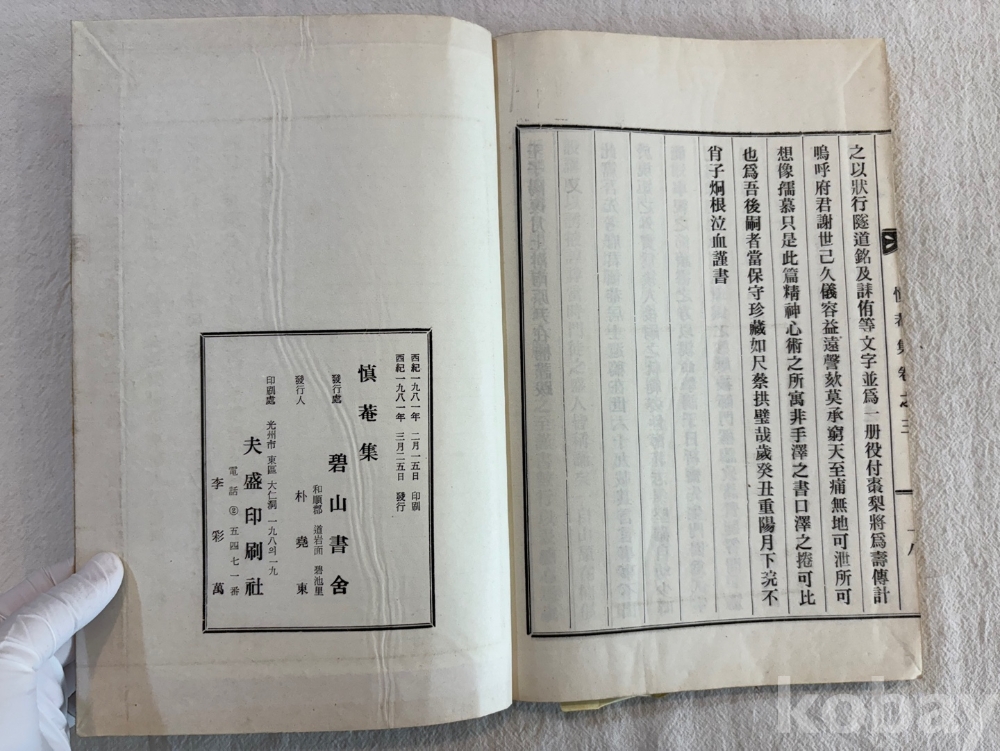 之以狀行隧道銘及誄侑等文字並爲一册役付棗梨將爲壽傳計
嗚呼府君謝世已久儀容益遠謦欬莫承窮天至痛無地可泄所可
想像孺慕只是此篇精神心術之所寓非手澤之書口澤之捲可比
也爲吾後嗣者當保守珍藏如尺蔡拱璧哉歲癸丑重陽月下浣不
肖子炯根泣血謹書
愼菴集卷之三
一八
西紀一九八一年 二月一五日 印刷
西紀一九八一年 三月二五日 發行
愼菴集
發行處 碧山書舍
和順郡 道岩面 碧池里
發行人 朴堯東
印刷處 光州市 東區 大仁洞 一九八의一九
夫盛印刷社
電話 ② 五四七一番
李彩萬
kobay